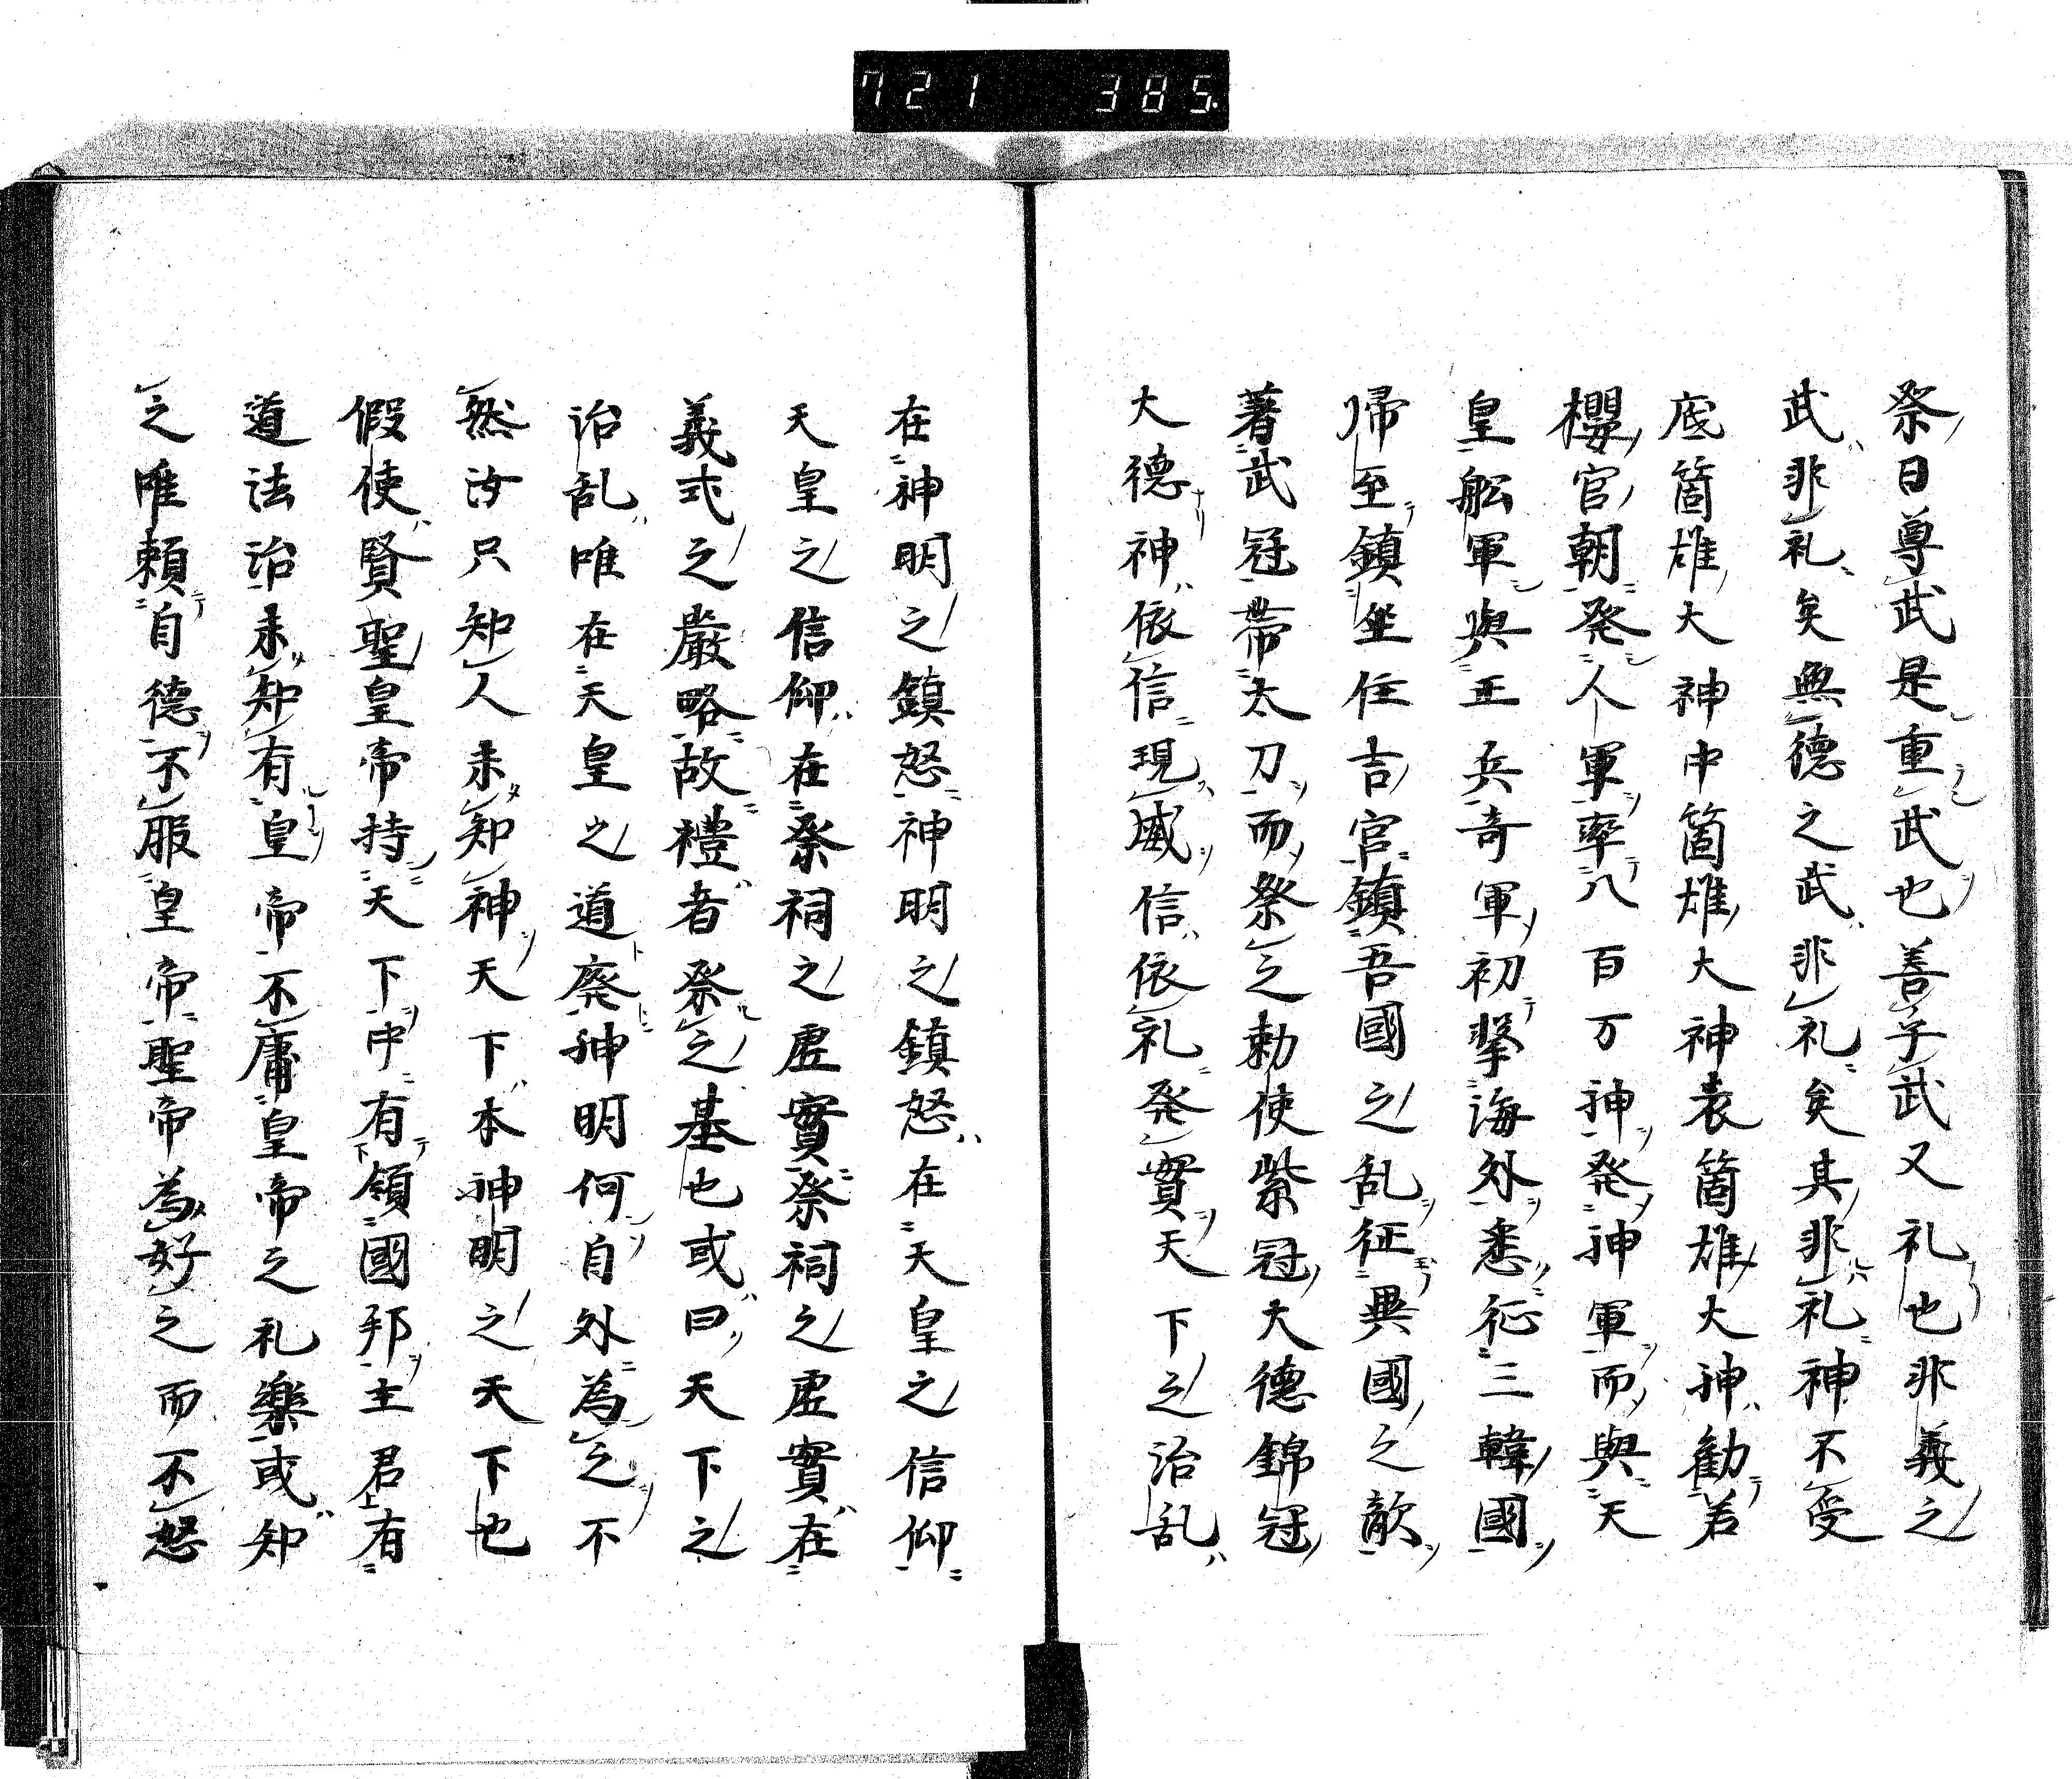 721 385
祭日尊武是重武也善予武又礼也非義之
武非礼矣無德之武非礼矣其非礼神不受
底箇雄大神中箇雄大神表箇雄大神勧若
櫻官朝発人軍率八百万神発神軍而與天
皇舩軍與正兵奇軍初擧海外悉征三韓國
帰至鎮坐住吉宮鎮吾國之乱征異國之敵
著武冠帯太刀而祭之勅使紫冠大德錦冠
大德神依信現威信依礼発實天下之治乱
在神明之鎮怒神明之鎮怒在天皇之信仰
天皇之信仰在祭祠之虚實祭祠之虚實在
義式之嚴略故禮者祭之基也或曰天下之
治乱唯在天皇之道廃神明何自外為之不
然汝只知人未知神天下本神明之天下也
假使賢聖皇帝持天下中有領國邦主君有
道法治未知有皇帝不庸皇帝之礼樂或知
之唯頼自德不服皇帝聖帝為好之而不怒